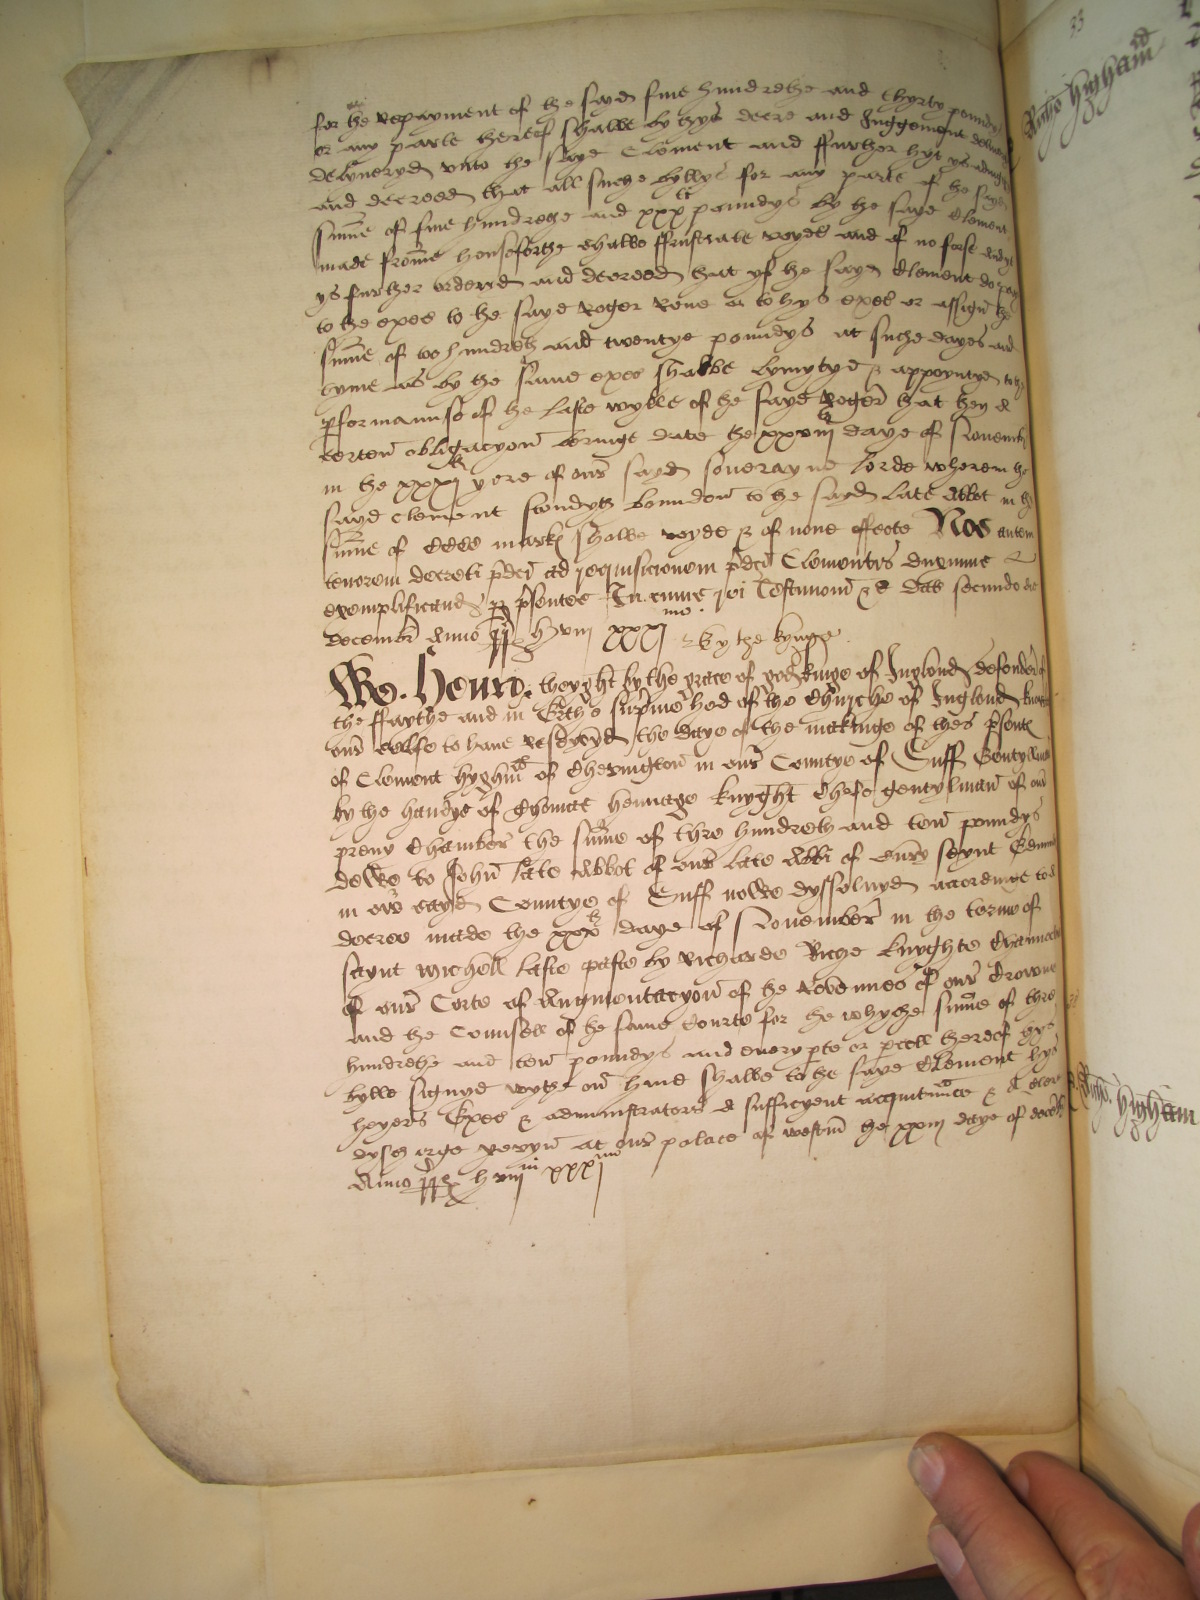 for the repayment of the sayd fyve hundrethe and thyrty poundys
or any parte therof shalbe by thys decre and Juggement
delyveryd unto the saye Clement and further hyt ys
and decreed that all suche byllys for any parte of the saye
sume of fyve hundrethe and xxxti poundys by the saye Clement
made frome hensforthe shalbe frustrate voyde and of no forse and yt
ys further orderyd and decreed that yf the sayd Clement do pay
to the exec to the saye Roger Rene or to hys exec or assign the
sume of to hundreth and twentye poundys at suche dayes and
tyme as by the same exec shalbe lymytyd & appoyntyd to the
pformaunse of the laste wylle of the saye Roger that then
certen obligacyon beringe date the xxviijth daye of Novembr
in the xxxjth yere of our sayd soverayne lorde wherein the
sayd Clement stondyth bounden to the sayd late Abbot in the
sume of CCCC markes shalbe voyde & of none effecte Nos autem
tenorem decreti pdci ad requisicionem pdci Clementis duximus
exemplificand p psentes In cuius rei testimoniu &c Dat secundo die
Decembr Anno RR H viij xxxjmo
By the kynge
Henry theyght by the grace of god kinge of Inglond defender of
the ffaythe and in Erthe supme hed of the Churche of Inglond
our selfe to have resseyvyd the daye of the makinge of thes psente
of Clement hyghm of Chevington in our Countye of Suff Gentylman
by the handys of Thomas hennage knyght Chefe gentylman of our
prevy Chamber the sume of thre hundreth and ten poundys
dewe to John late Abbot of our late Abbi of Bury seynt Edmund
in our sayd Countye of Suff nowe dyssolvyd accordinge to a
decree made the xxxth daye of November in the terme of
saynt Michell laste paste by Richarde Riche knyghte Chauncelor
of our Corte of Augmentacyon of the Revenues of our Crowne
and the Counsell of the same Courte for the whyche sume of thre
hundrethe and ten poundys and every pte or pcell therof thys
bylle signyd wythe our hand shalbe to the saye Clement hys
heyers Exec & administrators a suffycyent acquitance & a clere
dyscharge yevyn at our palace of westm the xxiij daye of decembr
Anno RR H viij xxxjmo
33
Higham
Higham